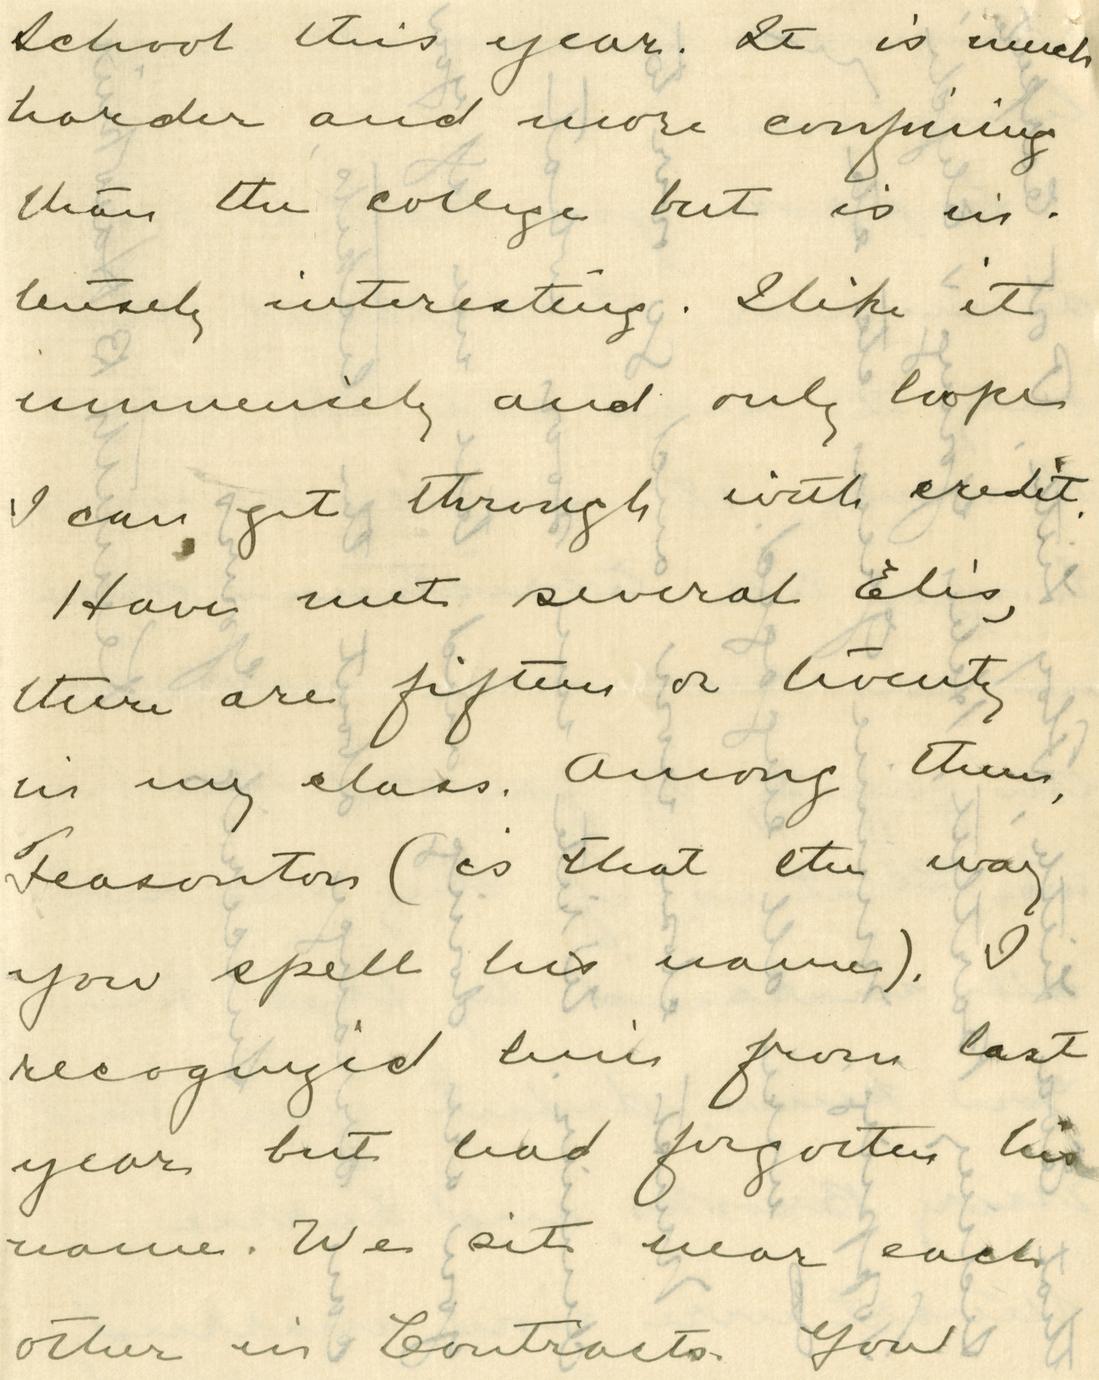 School this year. It is much
harder and more confining
than the college but is in-
tensely interesting. I like it
immensely and only hope
I can get through with credit.
Have met several Elis,
there are fifteen or twenty
in my class. Among them,
Feasonton (is that the way
you spell his name). I
recognized him from last
year but had forgotten his
name. We sit near each
other in Contracts. You